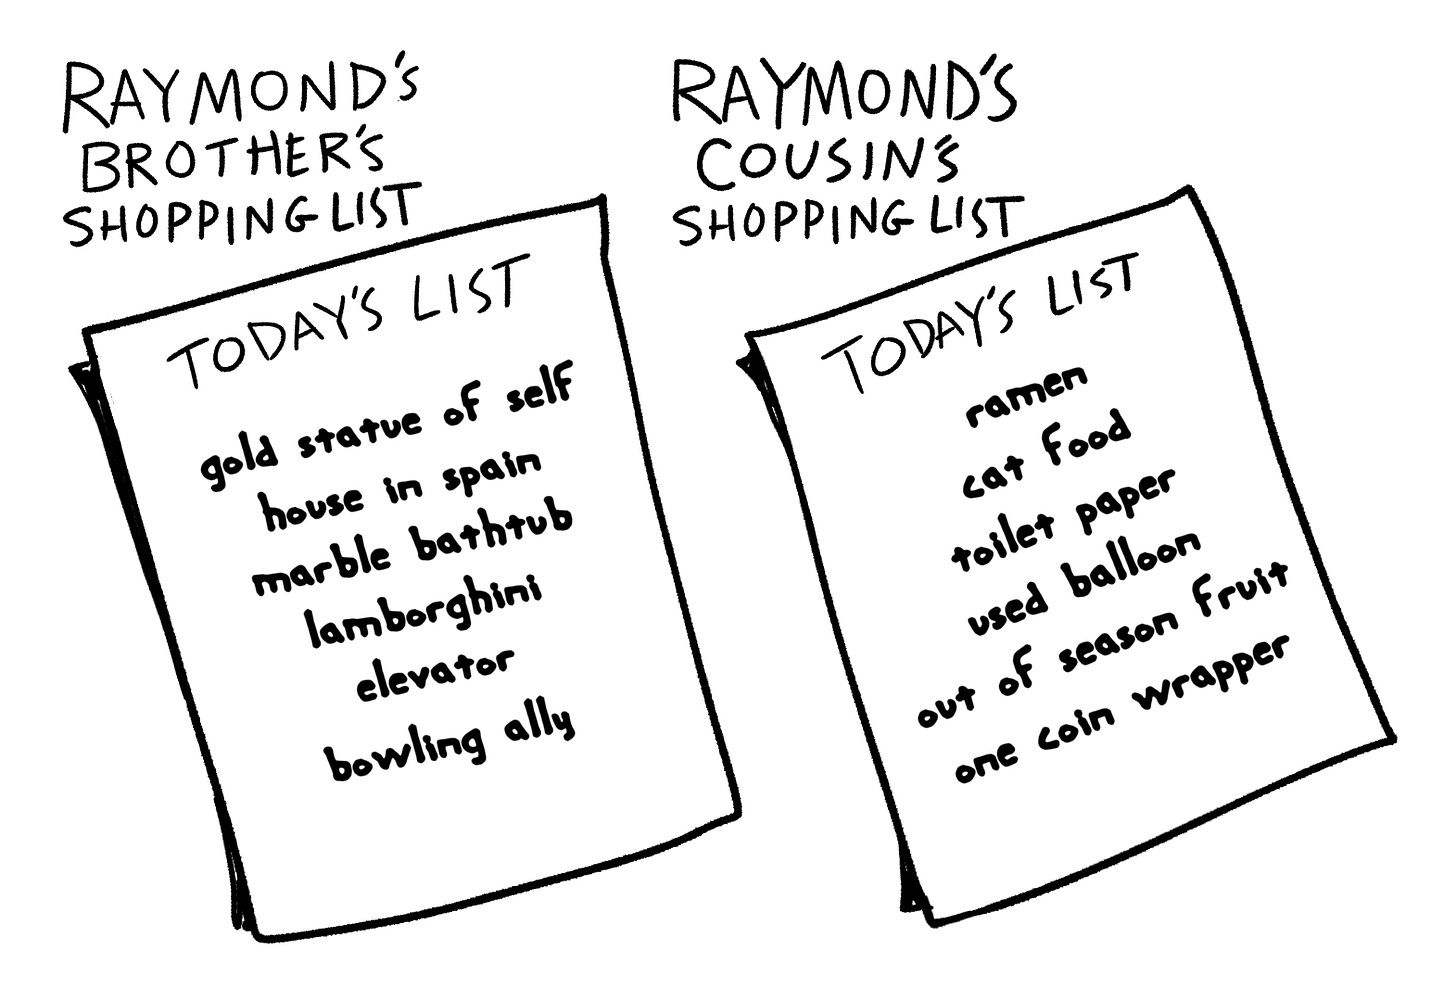 RAYMOND'S
BROTHER'S
SHOPPING LIST
TODAY'S LIST
gold statue of self
house in spain
marble bathtub
lamborghini
elevator
bowling ally
RAYMOND'S
COUSIN'S
SHOPPING LIST
TODAY'S LIST
ramen
cat food
toilet paper
used balloon
out of season fruit
one coin wrapper